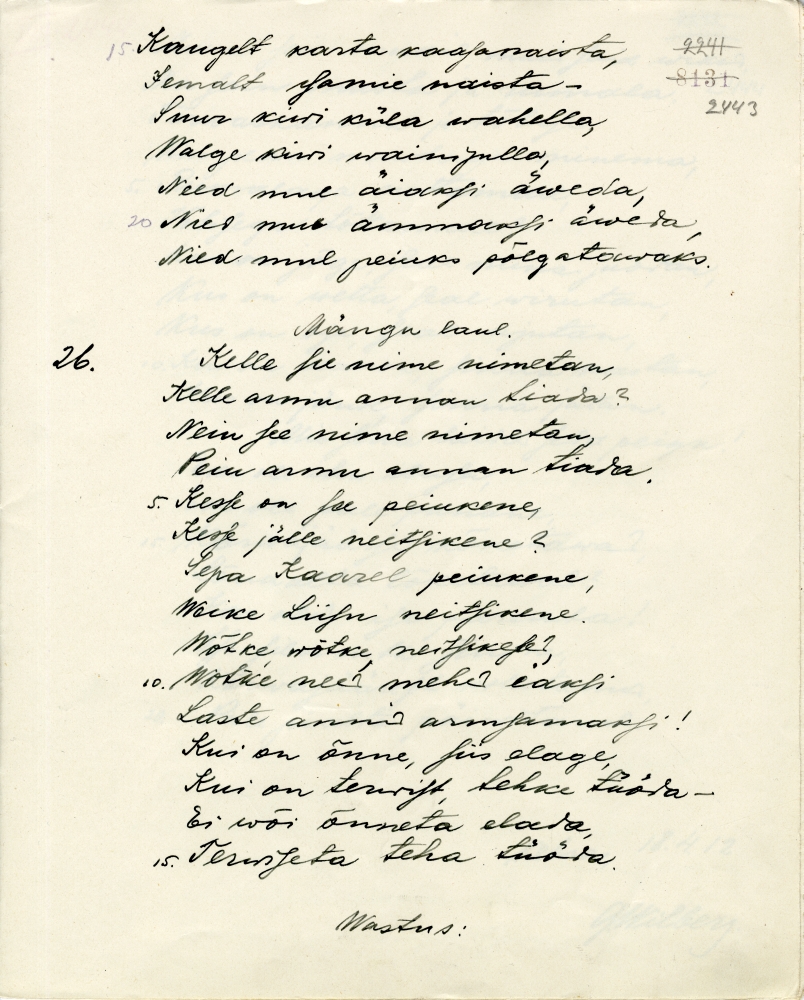 2241
8131
2443
15 Kaugelt karta kaasanaista,
Jemalt isamie naista –
Suur kiwi küla wahella,
Walge kiwi wainijulla,
Need mul äiaksi äweda,
20 Nied mul ämmaksi äweda,
Nied mul peiuks põlgatawaks.
Mängu laul.
26. Kelle sie nime nimetan,
Kelle armu annan tiada?
Nein see nime nimetan,
Peiu armu annan tiada.
5. Kesse on see peiukene,
Kesse jälle neitsikene?
Sepa Kaarel peiukene,
Weike Liisu neitsikene.
Wõtke, wõtke, neitsikesed,
10. Wõtke need mehed eaksi
Laste annid armsamaksi!
Kui on õnne, siis elage,
Kui on terwist, tehke tüöda –
Ei wõi õnneta elada,
15. Terwiseta teha tüöda.
Wastus: